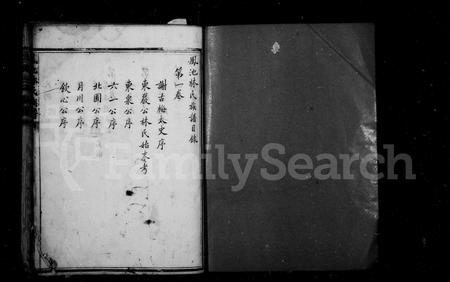 鳳池林氏族譜目錄
第一卷
謝古梅太史序
東嚴公林氏始墓考
東泉公序
六二公序
北園公序
月川公序
欽心公序
FamilySearch